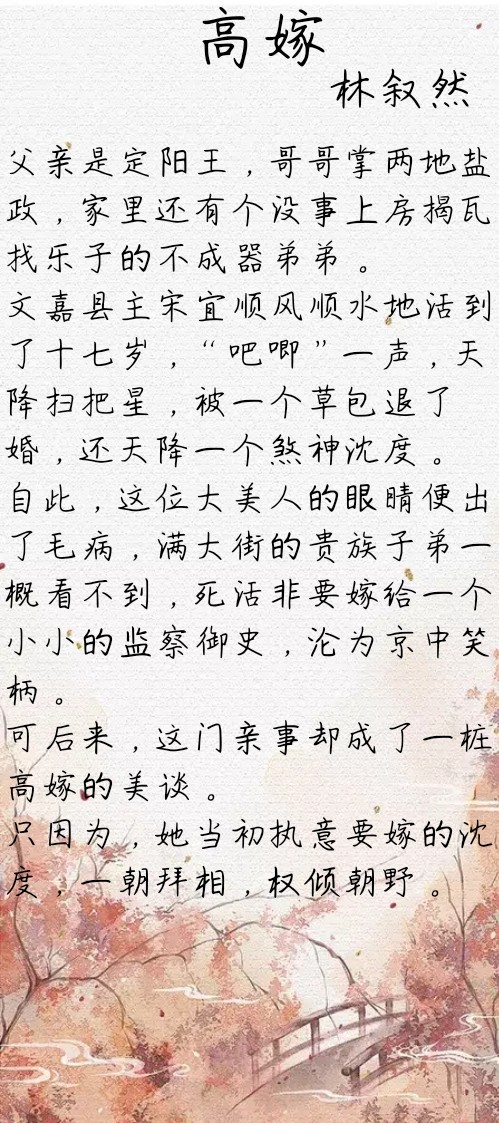 高嫁
林叙然
父亲是定阳王，哥哥掌两地盐
政，家里还有个没事上房揭瓦
找乐子的不成器弟弟。
文嘉县主宋宜顺风顺水地活到
了十七岁，“吧唧”一声，天
降扫把星，被一个草包退了
婚，还天降一个煞神沈度。
自此，这位大美人的眼睛便出
了毛病，满大街的贵族子弟一
概看不到，死活非要嫁给一个
小小的监察御史，沦为京中笑
柄。
可后来，这门亲事却成了一桩
高嫁的美谈。
只因为，她当初执意要嫁的沈
度，一朝拜相，权倾朝野。